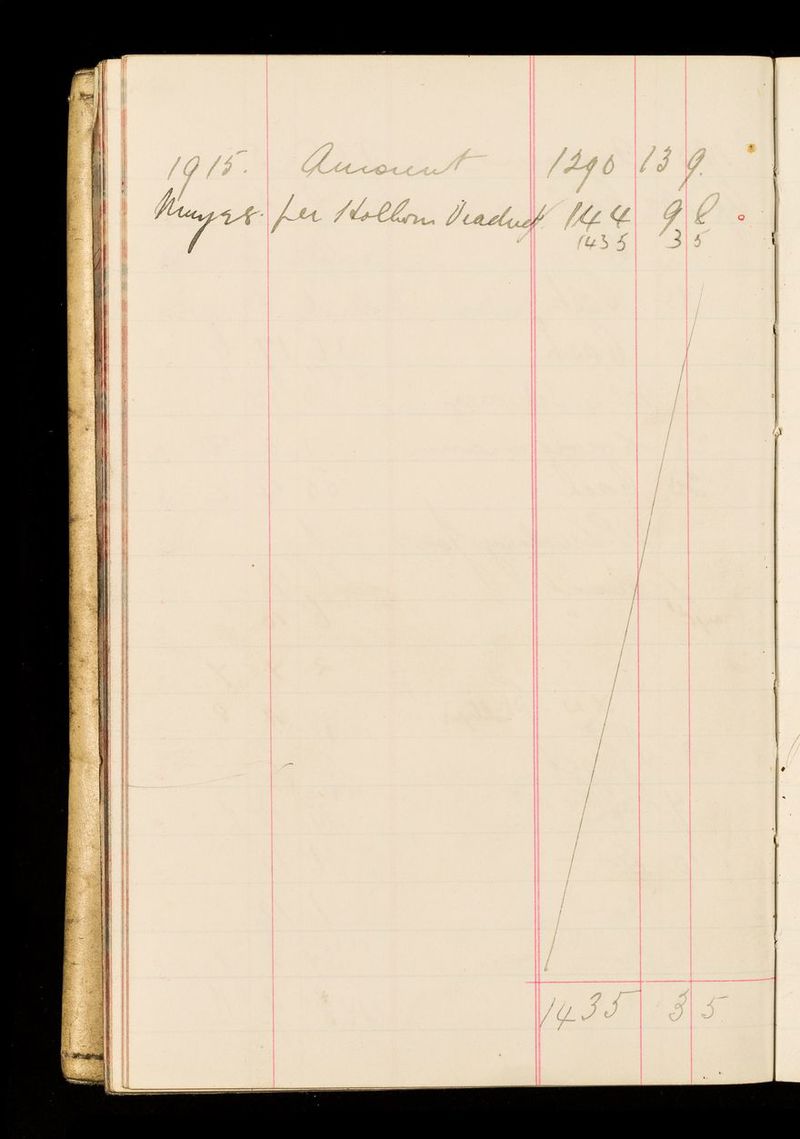 1915. Amount 1290 13 9.
per Holborn Viaduct 144 9 8
1435 3 5
1435 3 5